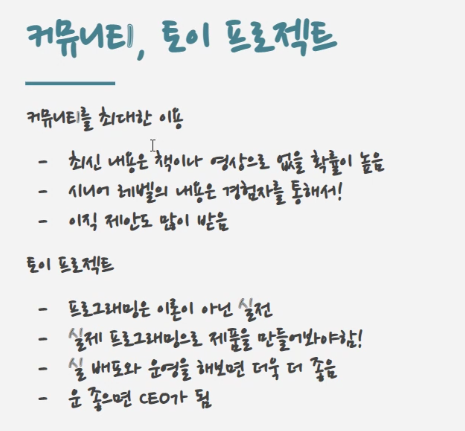 커뮤니티, 토이 프로젝트
커뮤니티를 최대한 이용
- 최신 내용은 책이나 영상으로 없을 확률이 높음
- 시니어 레벨의 내용은 경험자를 통해서!
- 이직 제안도 많이 받음
토이 프로젝트
- 프로그래밍은 이론이 아닌 실전
- 실제 프로그래밍으로 제품을 만들어봐야함!
- 실 배포와 운영을 해보면 더욱 더 좋음
- 운 좋으면 CEO가 됨